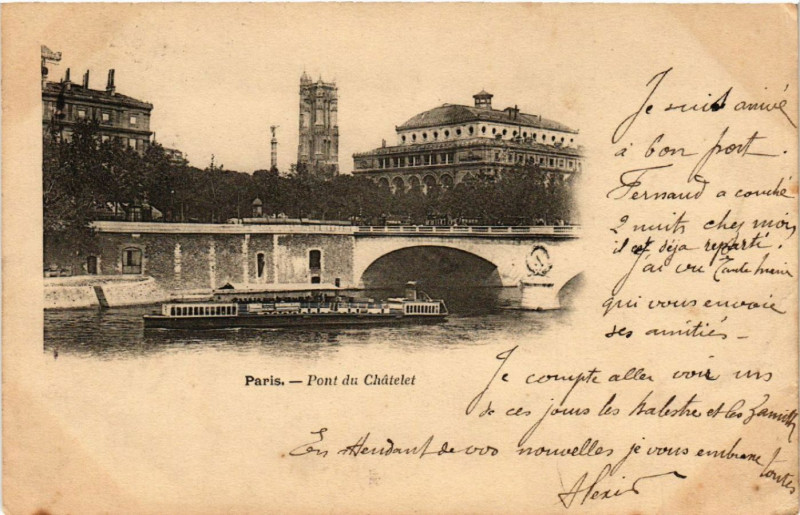 Je suis arrivé
à bon port.
Fernand a couché
2 nuits chez moi
il est déja reparti.
J'ai vu Tante
qui vous envoie
ses amitiés -
Je compte aller voir un
de ces jours les et les
En attendant de vos nouvelles je vous embrasse
toutes
Alexis
Paris. — Pont du Châtelet